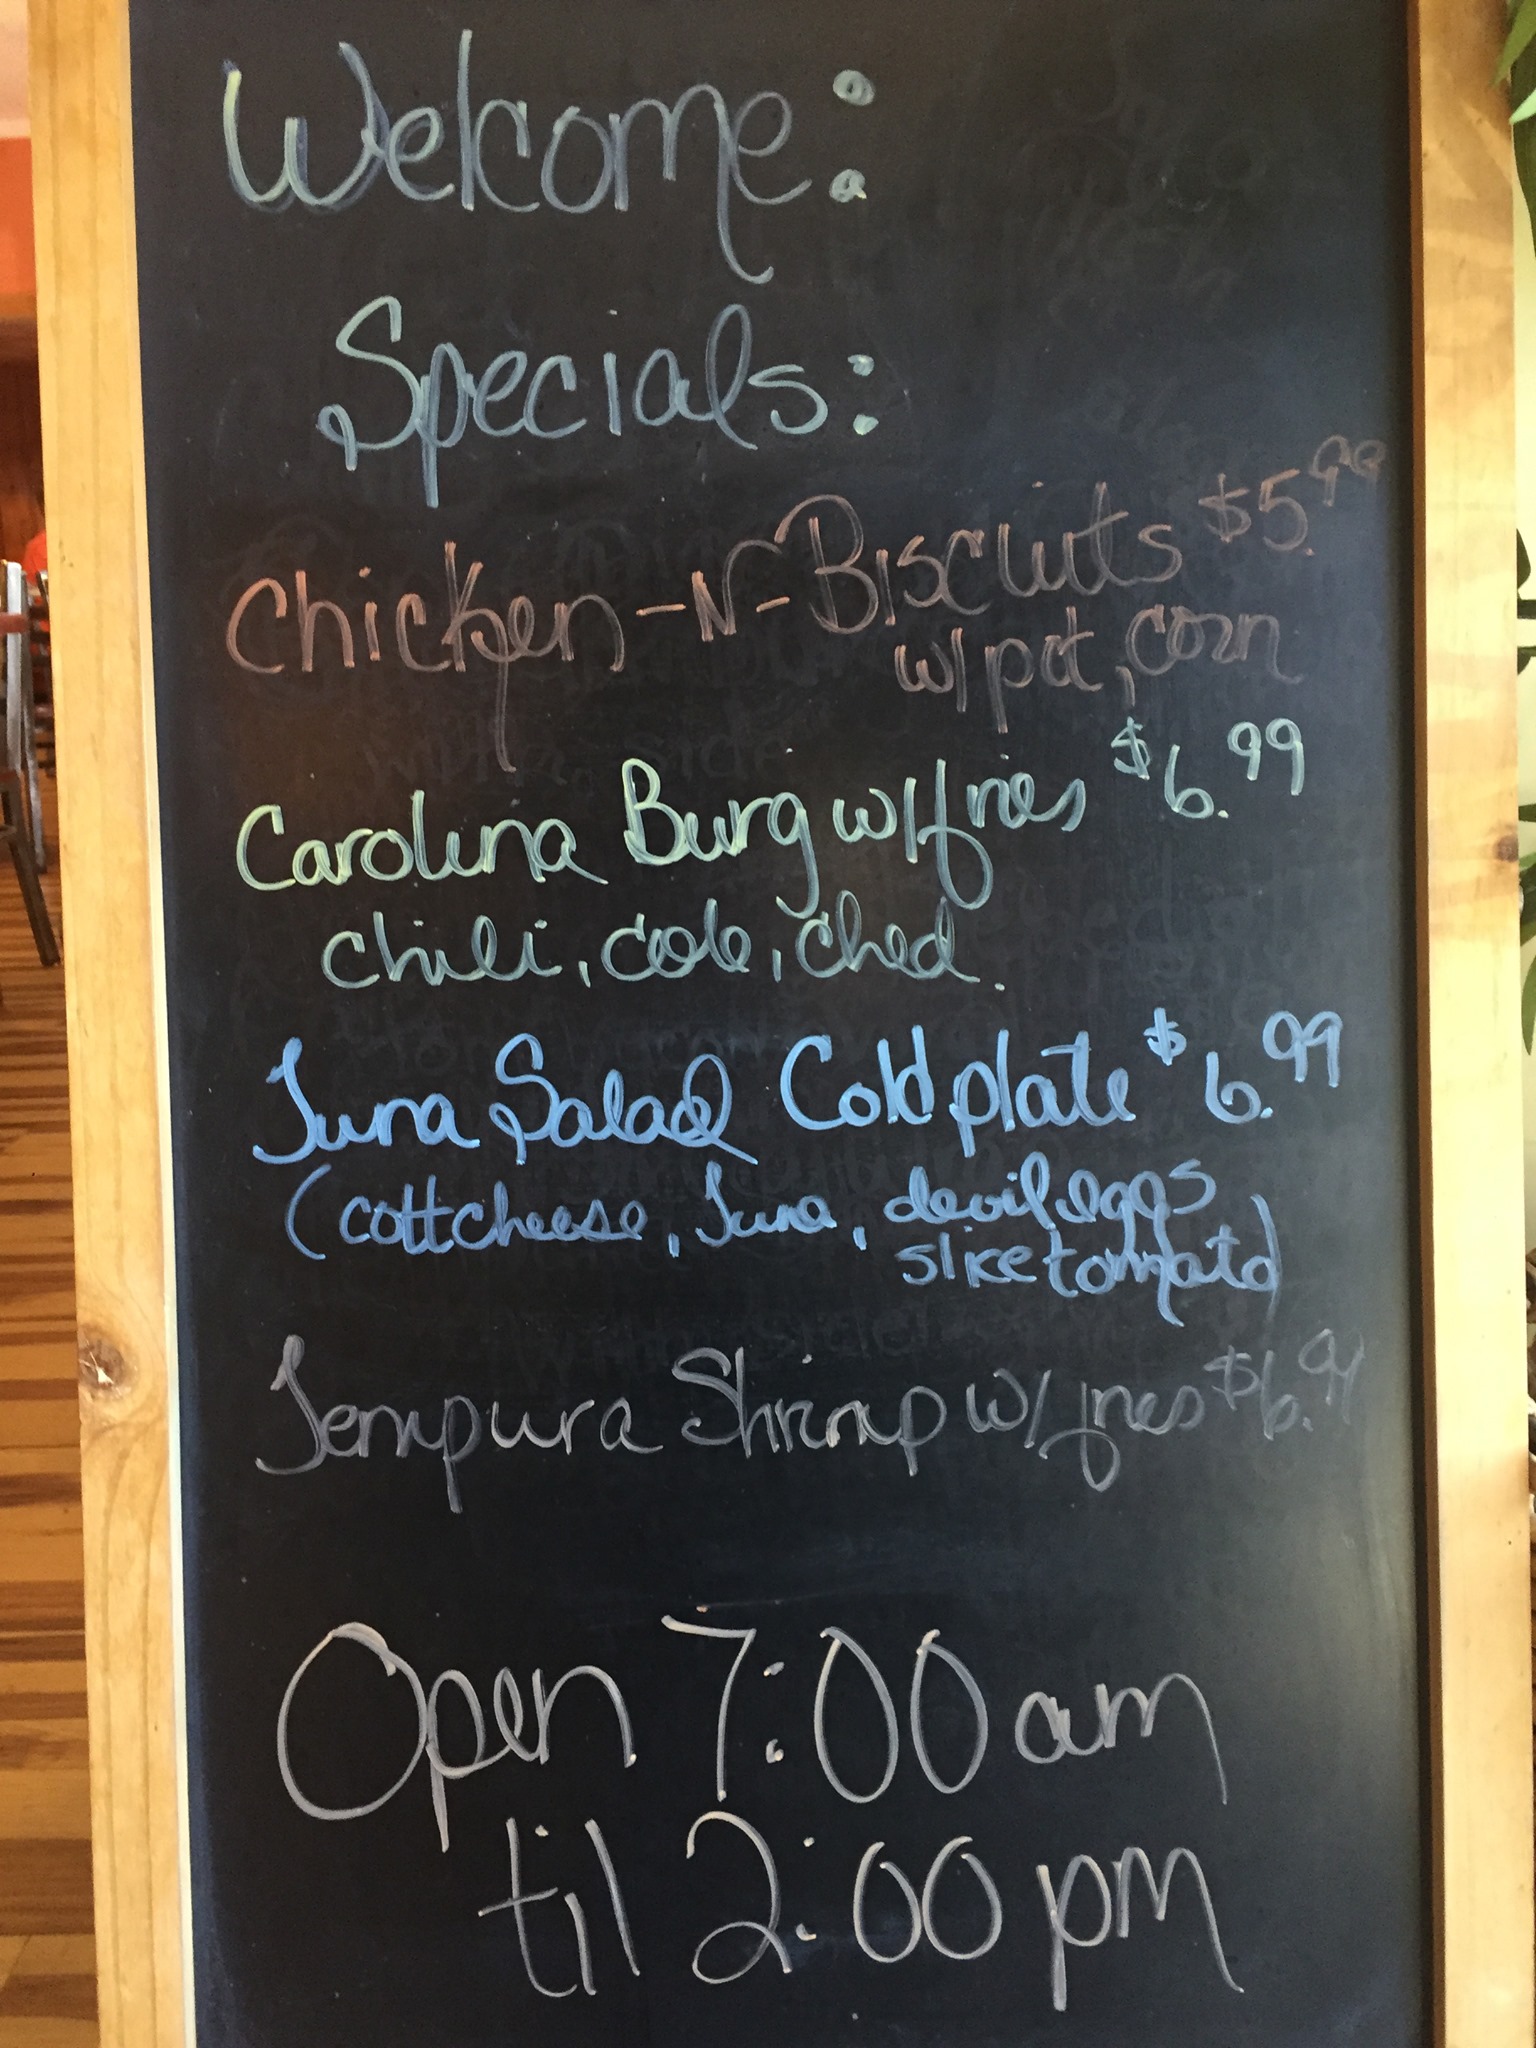 Welcome:
Specials:
Chicken-N-Biscuits $5.99
w/pot, corn
Carolina Burg w/fries $6.99
chili, cole, ched.
Tuna Salad Cold plate $6.99
(cottcheese, Tuna, devil eggs
slice tomato)
Tempura Shrimp w/fries $6.99
Open 7:00 am
til 2:00 pm